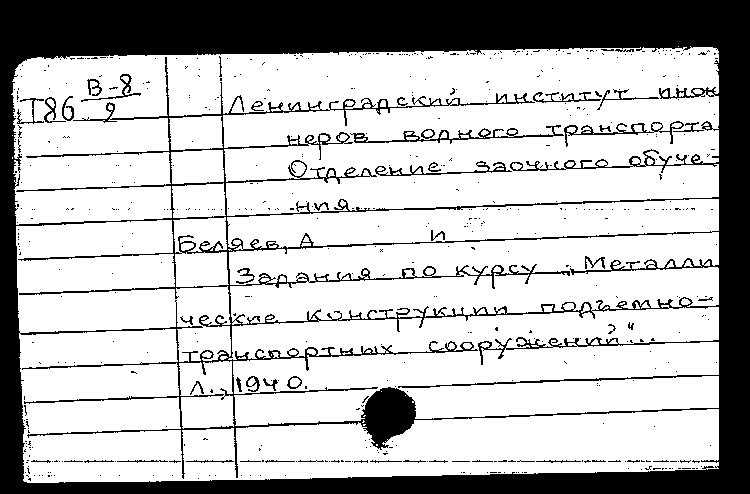 Т86 В-8/9
Ленинградский институт инже
неров водного транспорта
Отделение заочного обуче-
ния.
Беляев, А и
Задания по курсу „Металли
ческие конструкции подъемно-
транспортных сооружений"..
Л., 1940.